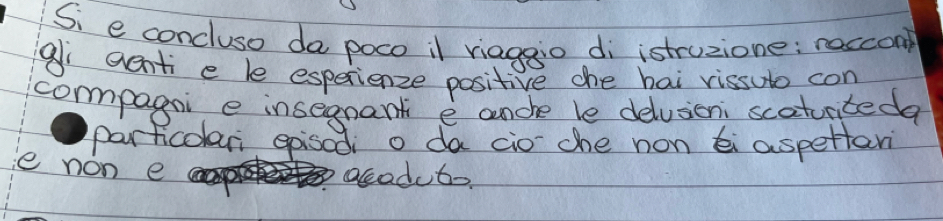 Si e concluso da poco il viaggio di istruzione: racconta
gli aenti e le esperienze positive che hai vissuto con
compagni e insegnanti e anche le delusioni scaturite da
particolari episodi o da ciò che non ti aspettavi
e non e accaduto.